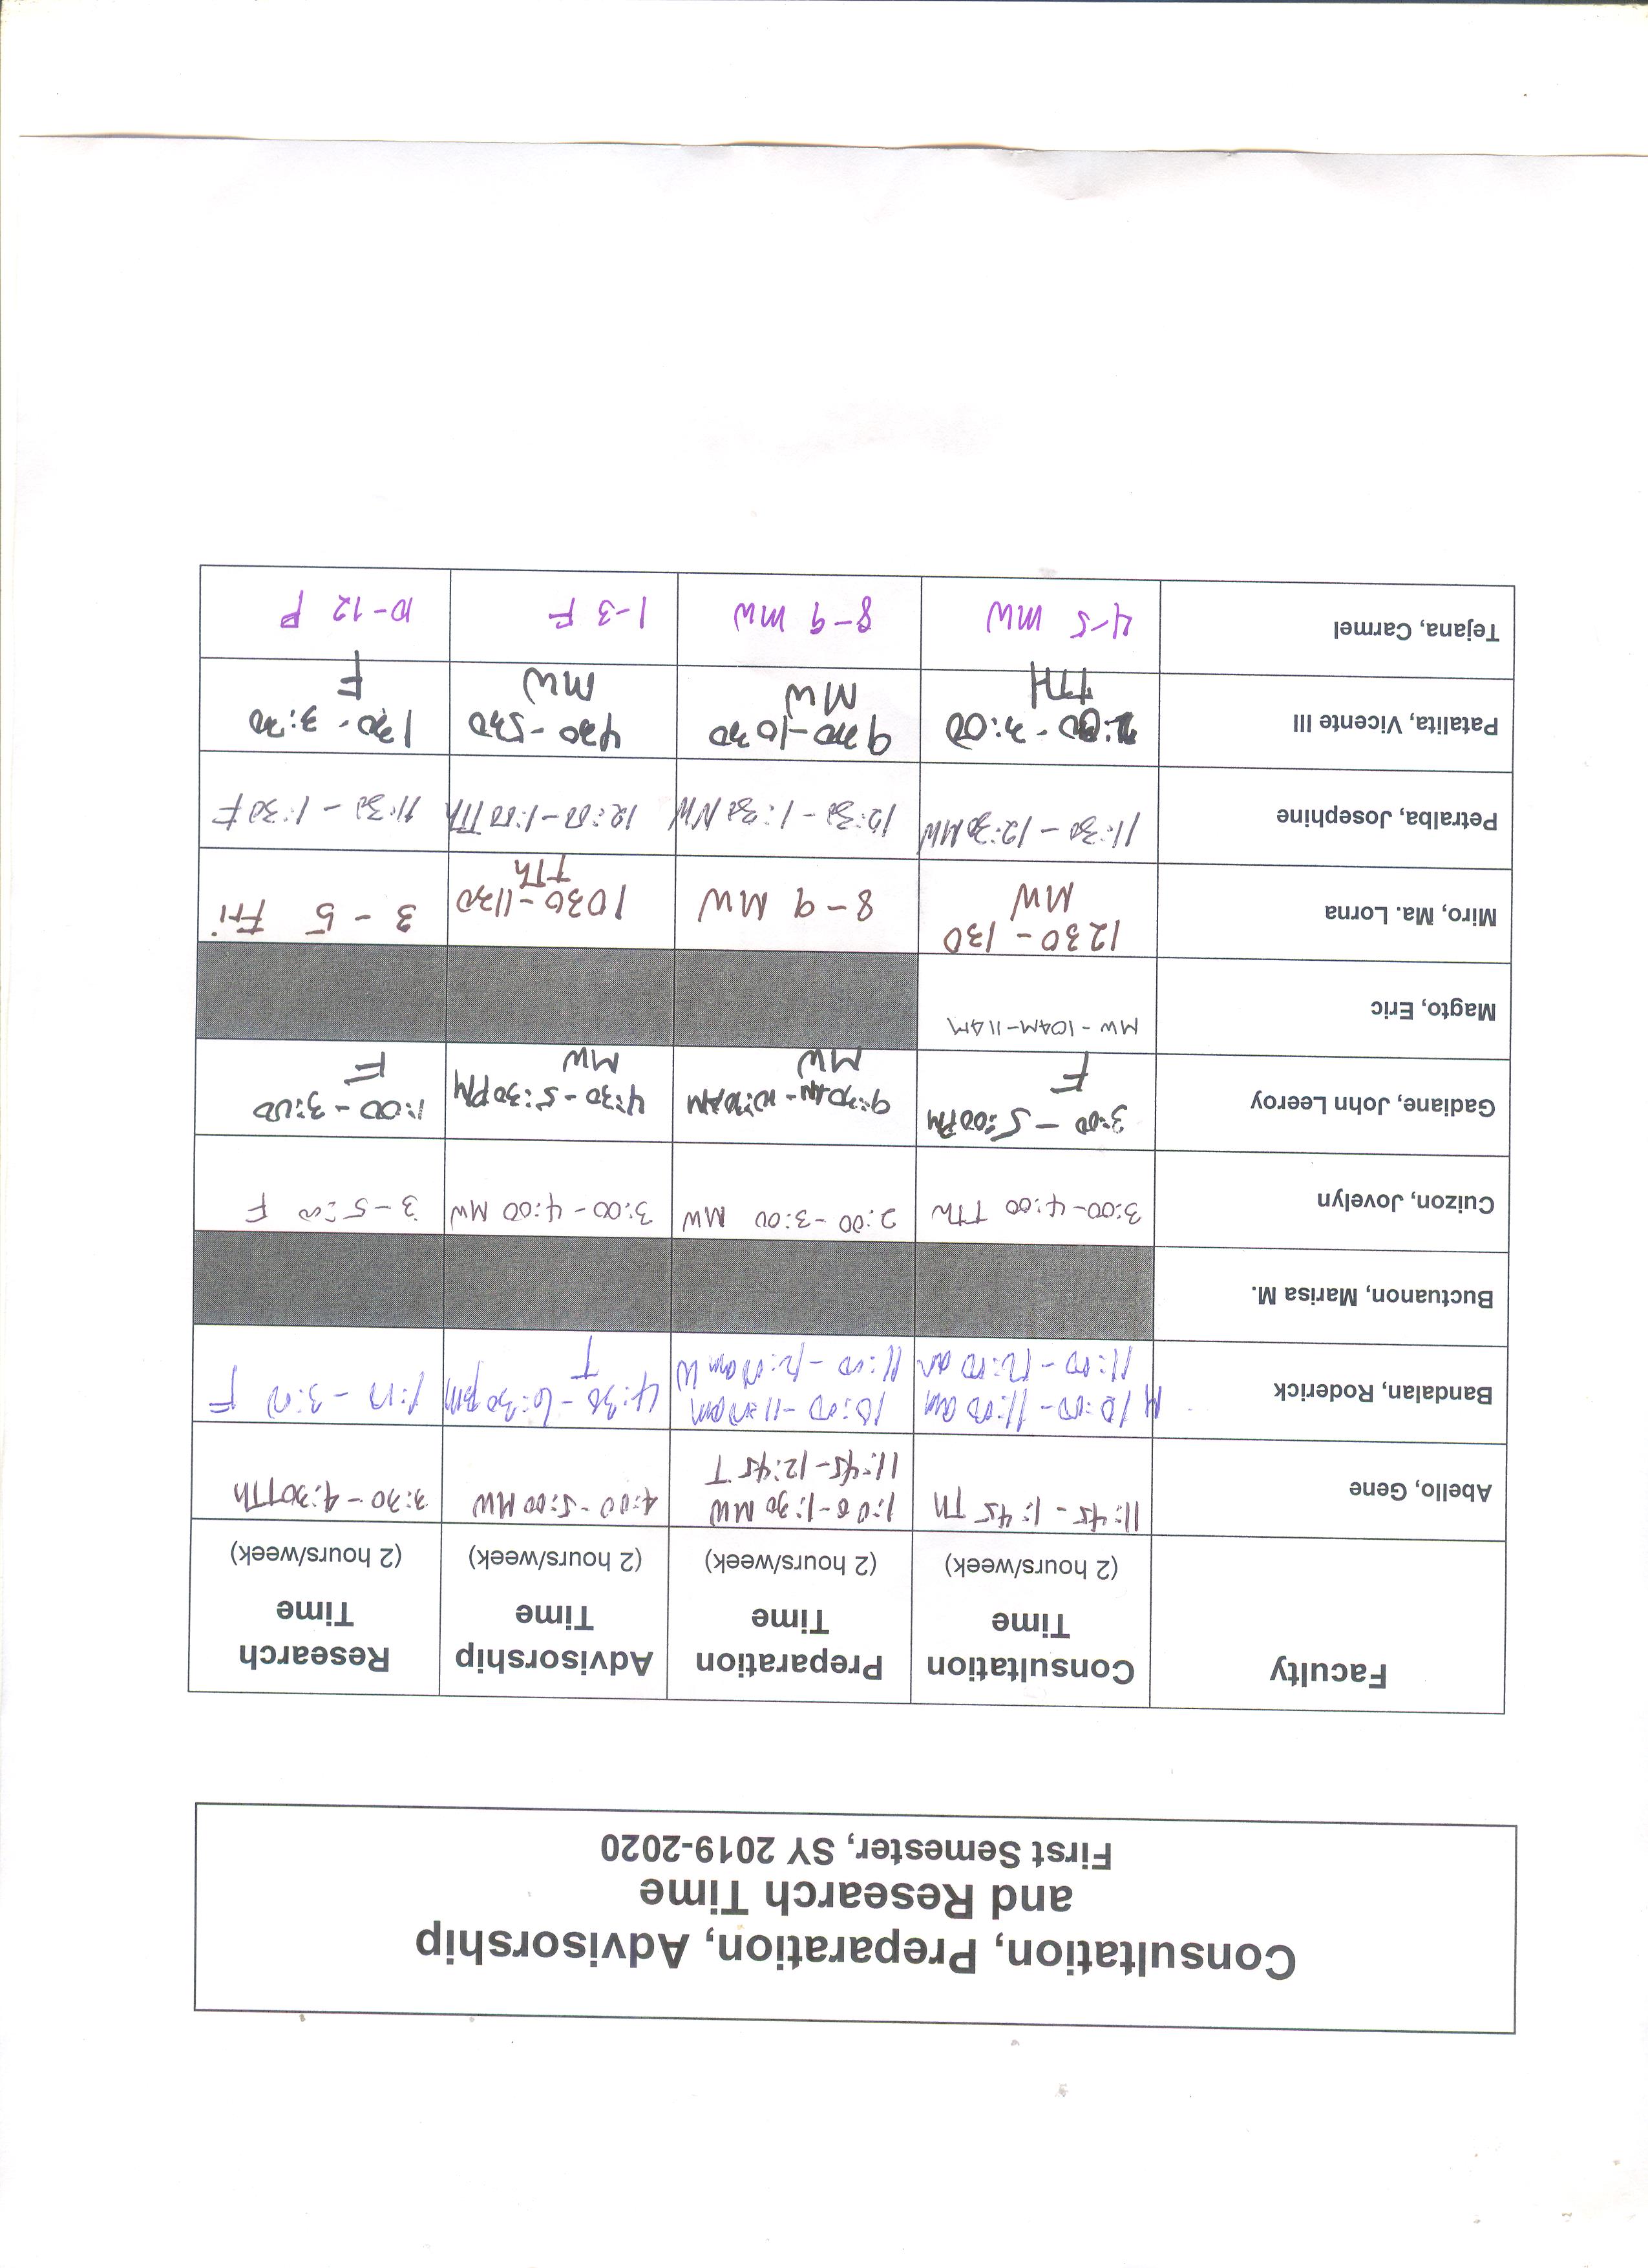 Consultation, Preparation, Advisorship
and Research Time
First Semester, SY 2019-2020
Faculty
Consultation
Time
(2 hours/week)
Preparation
Time
(2 hours/week)
Advisorship
Time
(2 hours/week)
Research
Time
(2 hours/week)
Abello, Gene
11:45 - 1:45 Th
1:00 - 1:30 MW
11:45 - 12:45 T
4:00 - 5:00 MW
3:30 - 4:30 TTh
Bandalan, Roderick
M 10:00 - 11:00 am
11:00 - 12:00 am
10:00 - 11:00 am
11:00 - 12:00 am W
4:30 - 6:30 pm
T
1:00 - 3:00 F
Buctuanon, Marisa M.
Cuizon, Jovelyn
3:00 - 4:00 TTh
2:00 - 3:00 MW
3:00 - 4:00 MW
3 - 5:00 F
Gadiane, John Leeroy
3:00 - 5:00 PM
F
9:30 AM - 10:30 AM
MW
4:30 - 5:30 PM
MW
1:00 - 3:00
F
Magto, Eric
MW - 10AM - 11AM
Miro, Ma. Lorna
1230 - 130
MW
8 - 9 MW
1030 - 1130
TTh
3 - 5 Fri
Petralba, Josephine
11:30 - 12:30 MW
12:30 - 1:30 MW
12:00 - 1:00 TTh
11:30 - 1:30 F
Patalita, Vicente III
- 3:00
TTH
930 - 1030
MW
430 - 530
MW
130 - 3:30
F
Tejana, Carmel
4-5 MW
8-9 MW
1-3 F
10-12 F